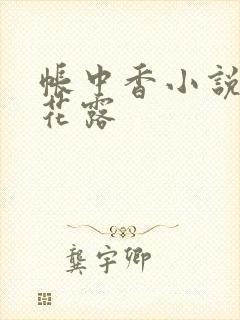 帳中香小說
花露
龔宇卿